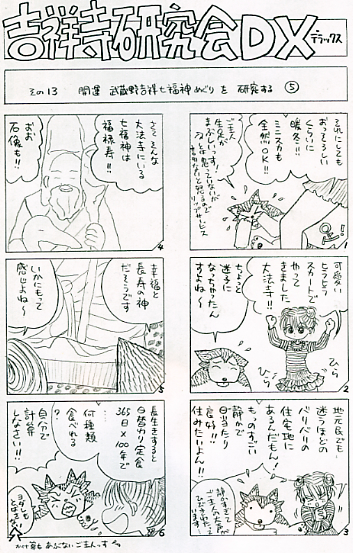 吉祥寺研究会DX
デラックス
その13 開運 武蔵野吉祥七福神めぐりを研究する ⑤
それにしても
おそろしい
くらいに
暖冬!!
ミニスカも
全然OK!!
ご主人
生足が
まぶしいっす!!
1
可愛く
ヒラヒラ
スカートで
やって
きました
大法寺!!
ちょっと
迷子に
なっちゃったん
すよね〜
ひら
ひら
2
地元民でも
迷うほどの
バリバリの
住宅地に
あるんだもん!
ものすごい
静かで
日当たり
良好!!
住みたいよん!!
3
さてそんな
大法寺にいる
七福神は
福禄寿!!
おお
石像も!!
4
幸福と
長寿の神
だそうです
いかにもって
感じよね〜
5
長生きすると
日替わり定食
365日×100年で
何種類
食べれる
?
自分で
計算
しんさい!!
6